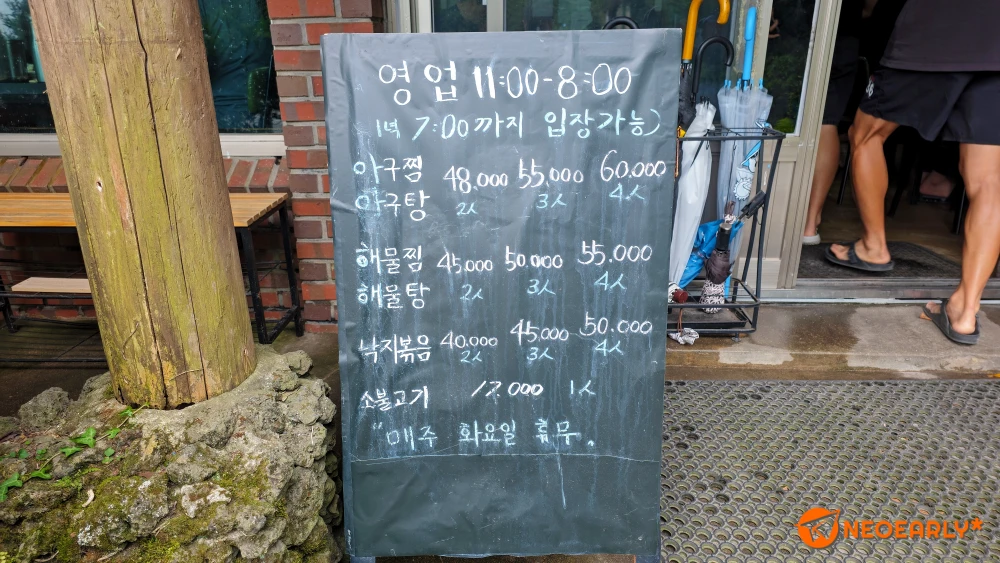 영업 11:00-8:00
저녁 7:00까지 입장가능)
아구찜 48,000 55,000 60,000
아구탕 2人 3人 4人
해물찜 45,000 50,000 55,000
해물탕 2人 3人 4人
낙지볶음 40,000 45,000 50,000
2人 3人 4人
소불고기 17,000 1人
"매주 화요일 휴무.
NEOEARLY*